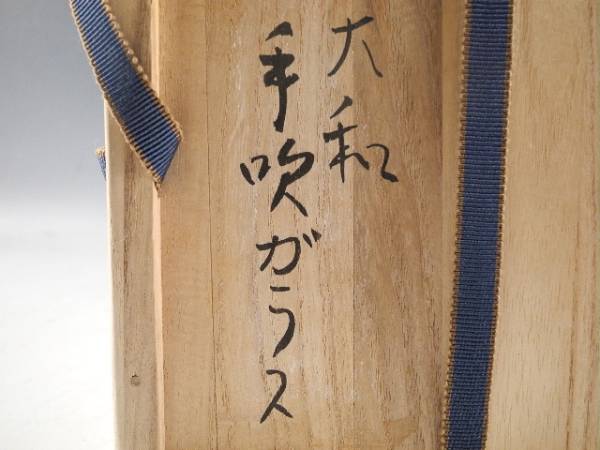 大和
手吹ガラス